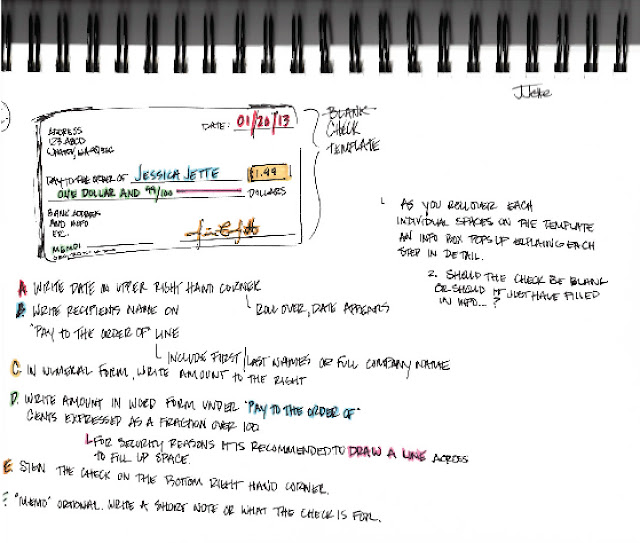 J. Jette
ADDRESS
123 ABCD
DATE: 01/20/13
PAY TO THE ORDER OF JESSICA JETTE $1.99
ONE DOLLAR AND 99/100 DOLLARS
BANK ADDRESS
AND INFO
ETC.
MEMO:
BLANK
CHECK
TEMPLATE
1. AS YOU ROLLOVER EACH
INDIVIDUAL SPACES ON THE TEMPLATE
AN INFO BOX POPS UP EXPLAINING EACH
STEP IN DETAIL.
2. SHOULD THE CHECK BE BLANK
OR SHOULD IT JUST HAVE FILLED
IN INFO...?
A. WRITE DATE IN UPPER RIGHT HAND CORNER
ROLL OVER, DATE APPEARS
B. WRITE RECIPIENTS NAME ON
"PAY TO THE ORDER OF" LINE
INCLUDE FIRST/LAST NAMES OR FULL COMPANY NAME
C. IN NUMERAL FORM, WRITE AMOUNT TO THE RIGHT
D. WRITE AMOUNT IN WORD FORM UNDER "PAY TO THE ORDER OF"
CENTS EXPRESSED AS A FRACTION OVER 100
FOR SECURITY REASONS IT IS RECOMMENDED TO DRAW A LINE ACROSS
TO FILL UP SPACE.
E. SIGN THE CHECK ON THE BOTTOM RIGHT HAND CORNER.
"MEMO" OPTIONAL. WRITE A SHORT NOTE OR WHAT THE CHECK IS FOR.